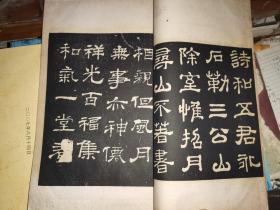 詩和五君永
石勒三公山
除室惟招月
尋山不若書
相親但風月
無事亦神僊
祥光百福集
和氣一堂春